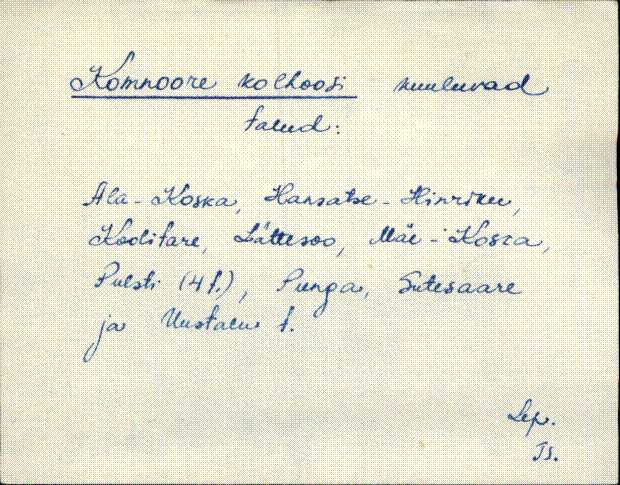 Komnoore kolhoosi kuuluvad
talud:
Ala-Koska, Hansatse-Hinriku,
Koolitare, Lättesoo, Mäe-Koska,
Pulsti (4 t.), Punga, Sutesaare
ja Uustalu t.
Lep.
Ts.